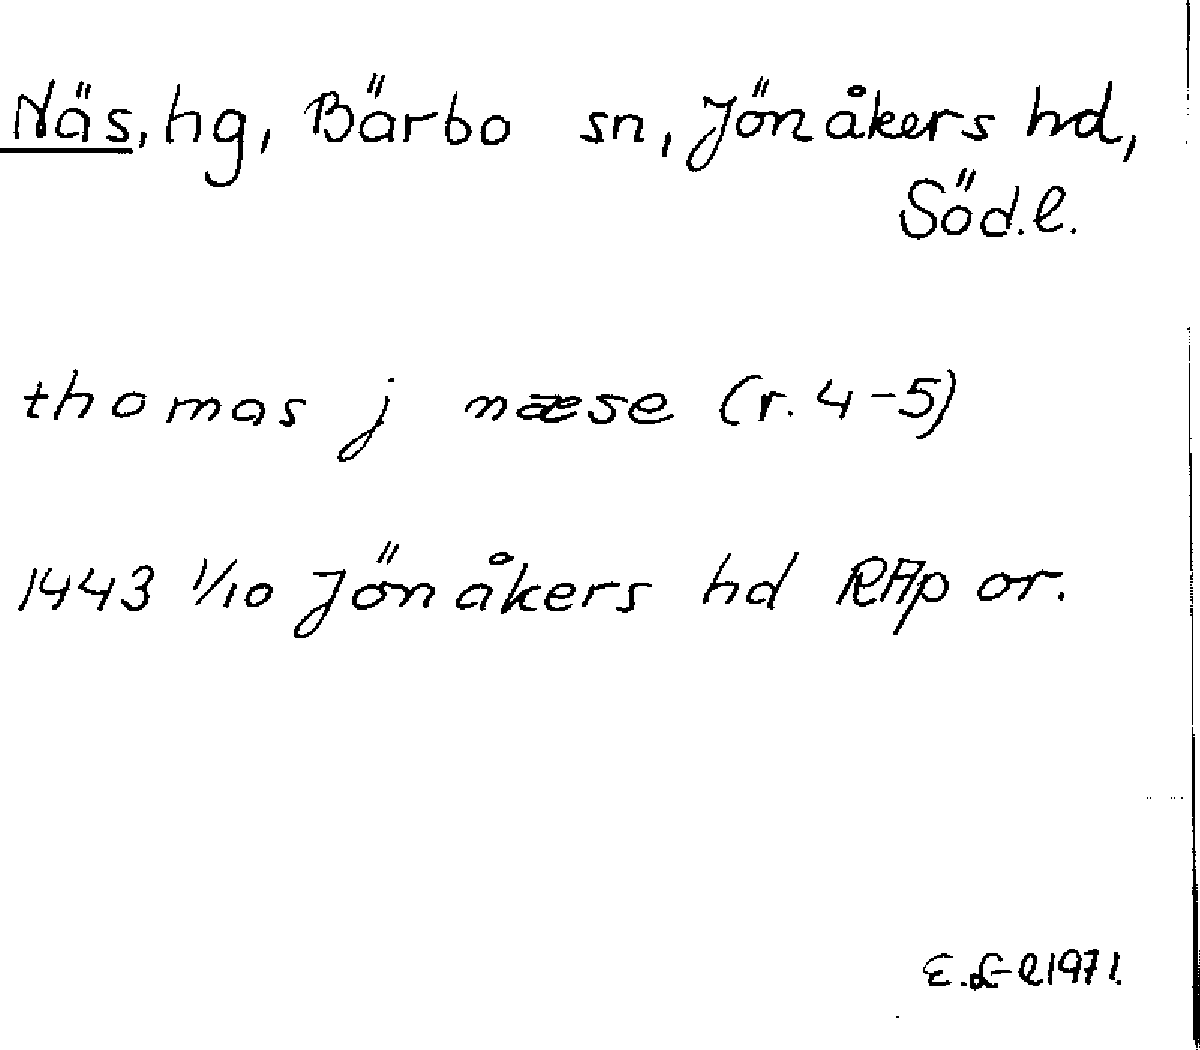 Näs, hg, Bärbo sn, Jönåkers hd,
Söd.l.
thomas j næse (r. 4-5)
1443 1/10 Jönåkers hd RAp or.
E. L-l 1971.